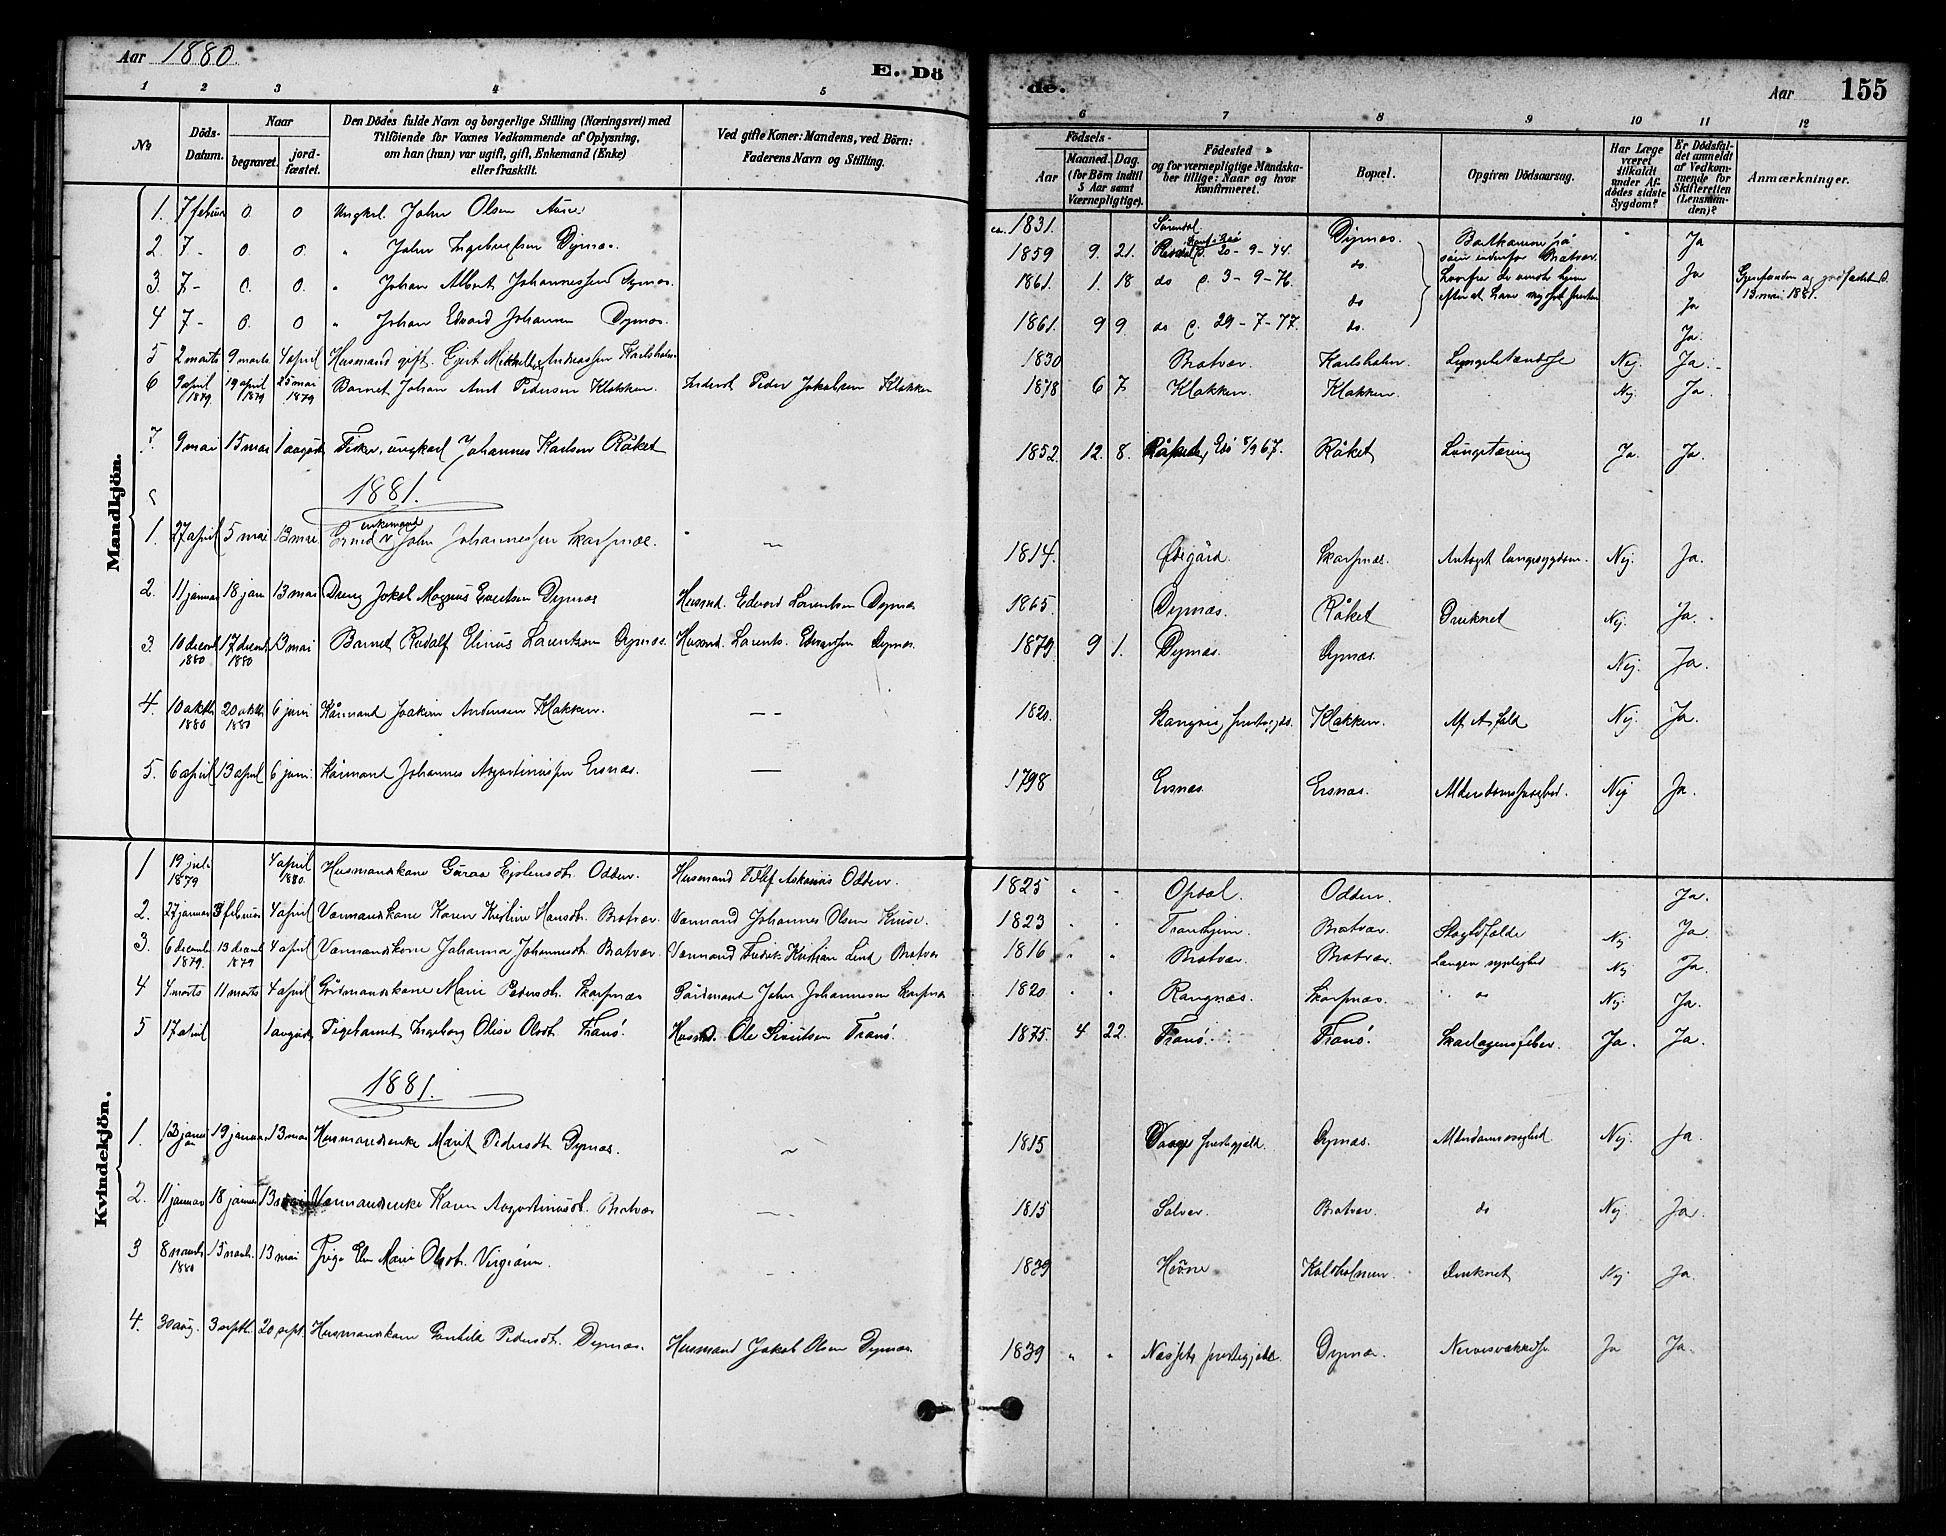 Aar 1880.
E. Dö
de.
Aar
155
1 2 3 4 5 6 7 8 9 10 11 12
No
Döds-Datum.
Naar
begravet.
jord-fæstet.
Den Dödes fulde Navn og borgerlige Stilling (Næringsvei) med
Tilföiende for Voxnes Vedkommende af Oplysning,
om han (hun) var ugift, gift, Enkemand (Enke)
eller fraskilt.
Ved gifte Koner: Mandens, ved Börn:
Faderens Navn og Stilling.
Födsels-
Aar
Maaned. Dag.
(for Börn indtil 5 Aar samt Værnepligtige).
Födested
og for værnepligtige Mandskaber tillige: Naar og hvor konfirmeret.
Bopæl.
Opgiven Dödsaarsag.
Har Læge været tilkaldt under Afdödes sidste Sygdom?
Er Dödsfaldet anmeldt af Vedkommende for Skifteretten (Lensmanden)?
Anmærkninger.
Mandkjön.
1. 7 februar 0. 0 Ungkl. John Olsen Aure ca. 1831. Dyrnæs. Ja
2. 7 - 0. 0. " John Ingebrigtsen Dyrnæs. 1859 9. 21. 20-9-74. do. Ja
3. 7 - 0. 0. " Johan Albert Johannessen Dyrnæs. 1861. 1. 18 do 3-9-76. do Ja 13 mai 1881.
4 7 - 0. 0 " Johan Edvard Johansen Dyrnæs. 1861. 9 9. do 29-7-77. do. Ja.
5 2 marts 9 marts 4 april Husmand gift. Andreassen Karlsholm 1830 Bratvær Karlsholm. Nej. Ja.
6 9 april 1879 19 april 1879 25 mai 1879 Barnet Johan Arnt Pedersen Klakken. Inderst Peder Jakobsen Klakken 1878 6 7 Klakken. Klakken. Nej. Ja.
7. 9 mai 15 mai 1 august Fisker, ungkarl Johannes Karlsen Råket 1852. 12. 8. Edö 8/9 67. Råket Lungetæring Ja. Ja.
1881.
1. 27 april 5 mai 13 mai enkemand John Johannessen Skarpnæs. 1814. Ødegård. Skarpnæs. Antaget lungesygdom. Nej. Ja.
2. 11 januar 18 jan 13 mai Dreng Jakob Magnus Evertsen Dyrnæs Husmd. Edvard Lorentsen Dyrnæs 1865. Dyrnæs. Råket Druknet Nej. Ja.
3. 10 decemb 1880 17 decemb 1880 13 mai Barnet Rudolf Elinus Lorentsen Dyrnæs. Husmd. Lorents Edvardsen Dyrnæs. 1879. 9 1. Dyrnæs. Dyrnæs. Nej. Ja.
4. 10 oktbr 1880 20 oktbr 1880 6 juni Kårmand Joakim Andersen Klakken. 1820. Klakken. Nej. Ja.
5. 6 april 13 april 6 juni Kårmand Johannes Augustinussen Ersnæs. 1798 Ersnæs Ersnæs. Alderdomssvaghed. Nej Ja.
Kvindekjön.
1 19 juli 1879 4 april 1880. Husmandskone Guroa Ejstensdt. Odden. Husmand Odden. 1825 " " Opdal. Odden. Ja.
2. 27 januar 3 februar 4 april Vaarmandskone Karen Kristine Hansdt. Bratvær. Vaarmand Johannes Olsen Kruse. 1823 Trondhjem. Bratvær. Nej Ja.
3. 6 decemb 1879. 13 decemb 1879 4 april Vaarmandskone Johanna Johannesdt. Bratvær. Vaarmand Fredrik Kristian Lind Bratvær 1816 " " Bratvær. Bratvær. Nej Ja.
4 4 marts 11 marts 4 april Gårdmandskone Marie Pedersdt. Skarpnæs Gårdmand John Johannesen Skarpnæs 1820 " " Rangnæs. Skarpnæs. do Nej. Ja.
5 17 april 1 august Pigebarnet Ingeborg Oline Olsdt. Tranö. Husmd. Ole Sivertsen Tranö. 1875. 4 22. Tranö. Tranö. Skarlagensfeber. Ja. Ja.
1881.
1. 19 januar 13 mai Husmandsenke Marit Pedersdt. Dyrnæs. 1815 præstegjeld. Dyrnæs. Alderdomssvaghed. Nej. Ja.
2. 11 januar 18 januar 13 mai Vaarmandsenke Karen Augustinusdt. Bratvær 1815 Solvær. Bratvær. do Nej. Ja.
3 8 novbr. 1880 15 novbr. 13 mai Pige Marie Olsdt. 1839 Druknet Nej Ja.
4. 30 aug. 3 septb. 20 sept. Husmandskone Gunhild Pedersdt. Dyrnæs. Husmand Jakob Olsen Dyrnæs. 1839 " " Næssets præstegjeld. Dyrnæs. Ja Ja.